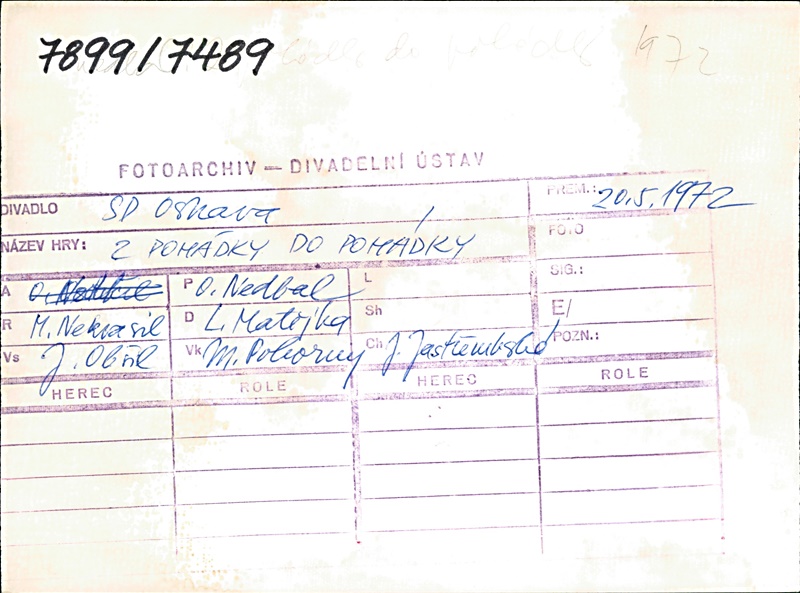 7899/7489
1972
FOTOARCHIV — DIVADELNÍ ÚSTAV
DIVADLO SD Ostrava PREM.: 20.5.1972
NÁZEV HRY: Z POHÁDKY DO POHÁDKY FOTO
A P O. Nedbal L SIG.:
R M. Nekrasil D L. Matějka Sh E/
Vs J. Obšil Vk M. Pokorny Ch J. Jastřembská POZN.:
HEREC ROLE HEREC ROLE